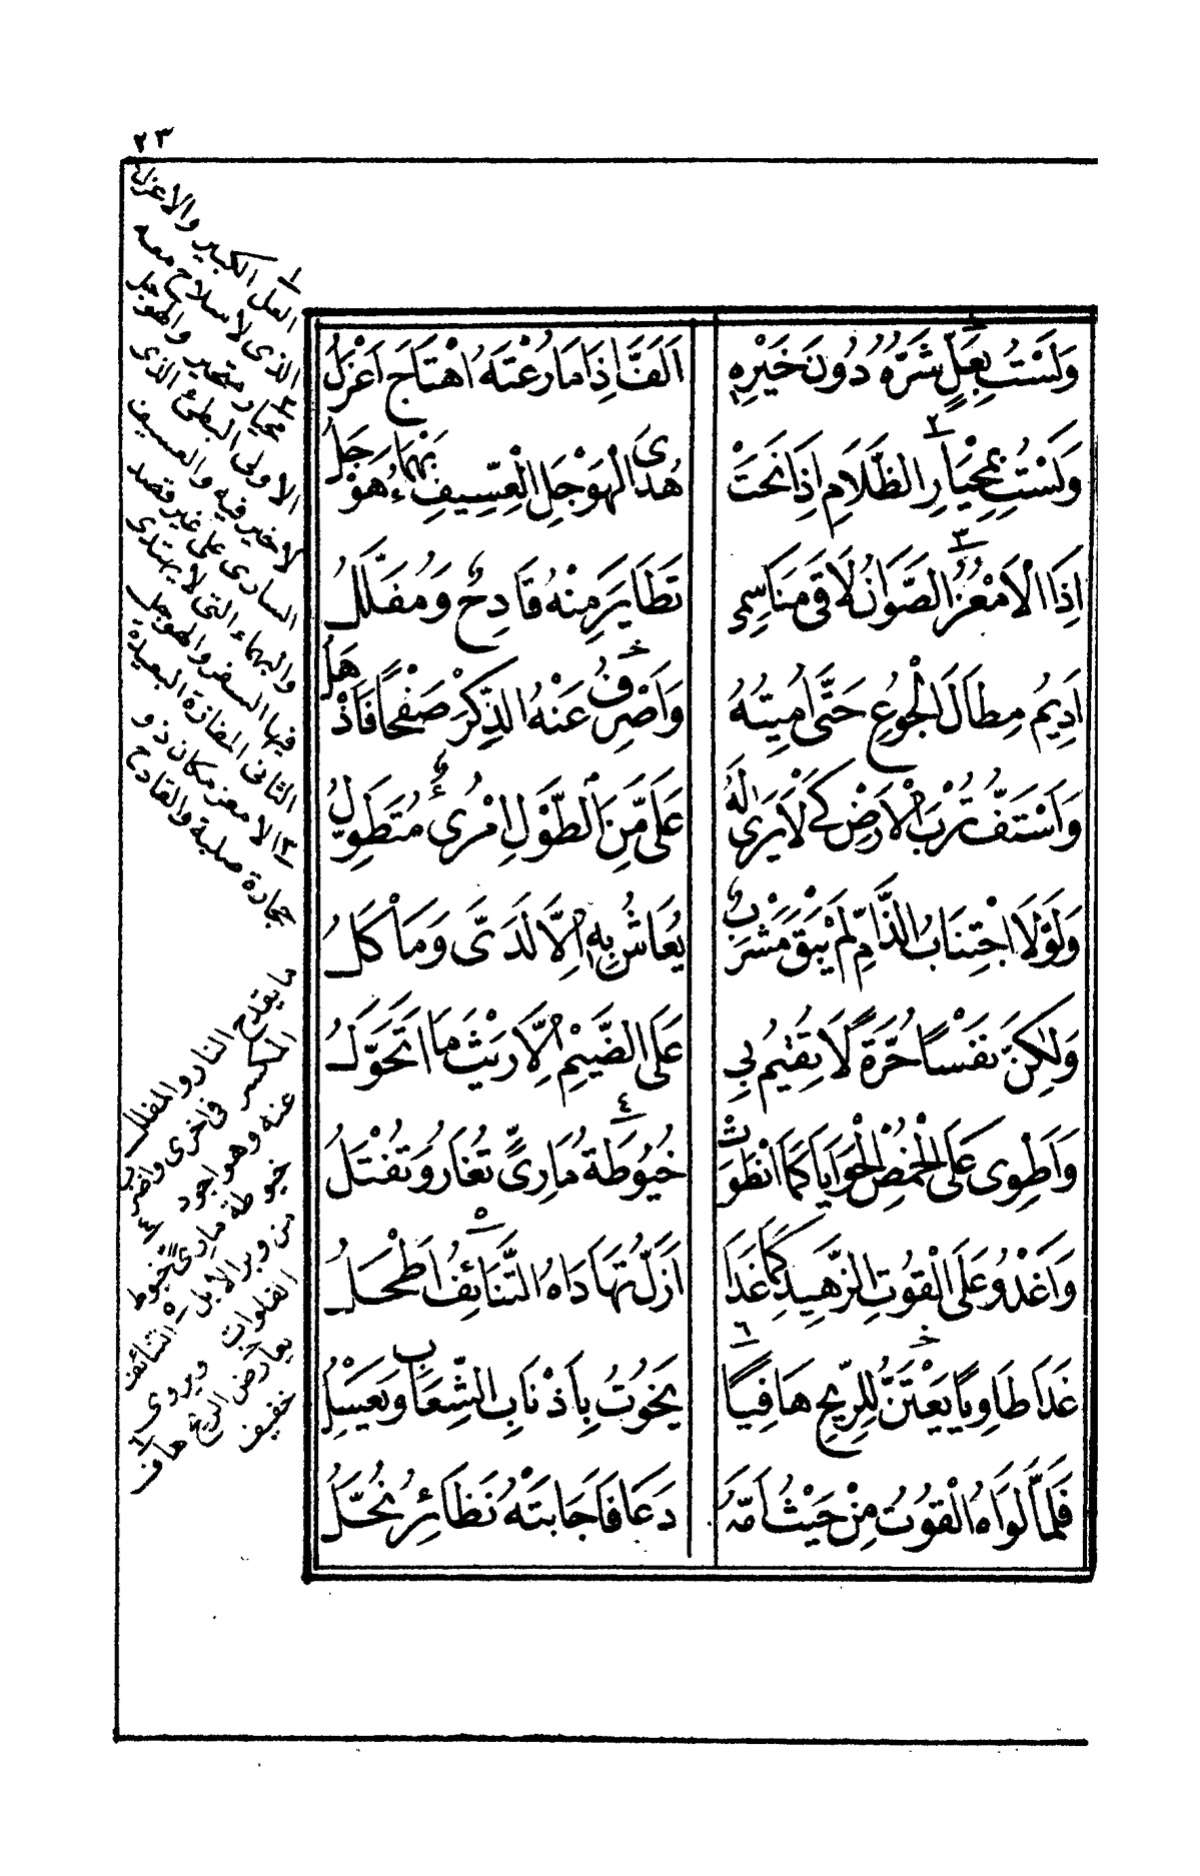 ٢٣
وَلَسْتُ بِعَلٍّ شَرُّهُ دُونَ خَيْرِهِ اَلَفَّ اِذَا مَا رُعْتَهُ اهْتَاجَ اَعْزَلُ
وَلَسْتُ بِمِحْيَارِ الظَّلَامِ اِذَا نَحَتْ هُدَى الْهَوْجَلِ الْعِسِّيفِ بَهْمَاءُ هَوْجَلُ
اِذَا الْاَمْعَزُ الصَّوَّانُ لَاقَى مَنَاسِمِى تَطَايَرَ مِنْهُ قَادِحٌ وَمُفَلَّلُ
اَدِيمُ مِطَالَ الْجُوعِ حَتَّى اُمِيتَهُ وَاَصْرِفُ عَنْهُ الذِّكْرَ صَفْحًا فَاَذْهَلُ
وَاَسْتَفُّ تُرْبَ الْاَرْضِ كَىْ لَا يَرَى لَهُ عَلَىَّ مِنَ الطَّوْلِ امْرُئٌ مُتَطَوِّلُ
وَلَوْلَا اجْتِنَابُ الذَّامِ لَمْ يَبْقَ مَشْرَبٌ يُعَاشُ بِهِ اِلَّا لَدَىَّ وَمَأْكَلُ
وَلٰكِنَّ نَفْسًا حُرَّةً لَا تُقِيمُ بِى عَلَى الضَّيْمِ اِلَّا رَيْثَمَا اَتَحَوَّلُ
وَاَطْوِى عَلَى الْخُمْصِ الْحَوَايَا كَمَا انْطَوَتْ خُيُوطَةُ مَارِىٍّ تُغَارُ وَتُفْتَلُ
وَاَغْدُو عَلَى الْقُوتِ الزَّهِيدِ كَمَا غَدَا اَزَلُّ تَهَادَاهُ التَّنَائِفُ اَطْحَلُ
غَدَا طَاوِيًا يَعْتَنُّ لِلرِّيحِ هَافِيًا يَخُوتُ بِاَذْنَابِ الشِّعَابِ وَيَعْسِلُ
فَلَمَّا لَوَاهُ الْقُوتُ مِنْ حَيْثُ اَمَّهُ دَعَا فَاَجَابَتْهُ نَظَائِرُ نُحَّلُ
١ العل الكبير والاعزل
الذى لا سلاح معه
٢ محيار متحير والهوجل
الاولى البطئ الذى
لا خير فيه والعسيف
السارى على غير قصد
واليهماء التى لا يهتدى
فيها السفر والهوجل
الثانى المفازة البعيدة
٣ الامعز مكان ذو
حجارة صلبة والقادح
ما يقدح النار والمفلل
المكسر
فى اخرى واضرب
عنه وهو اجود ٤
خيوطة مارى خيوط
من وبر الابل ٥ التنائف
الفلوات ويروى
يعارض الريح ٦ هاف
خفيف